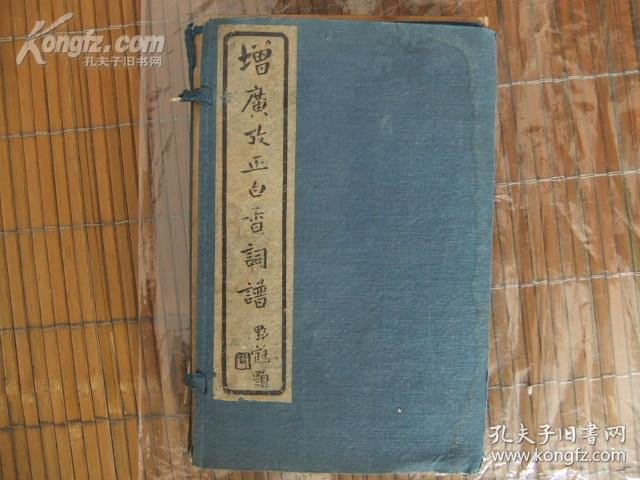 Kongfz.com
孔夫子旧书网
增廣攷正白香詞譜
野鶴題
孔夫子旧书网
www.kongfz.com